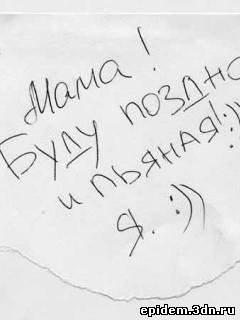 Мама!
Буду поздно
и пьяная!:))
Я. :))
epidem.3dn.ru